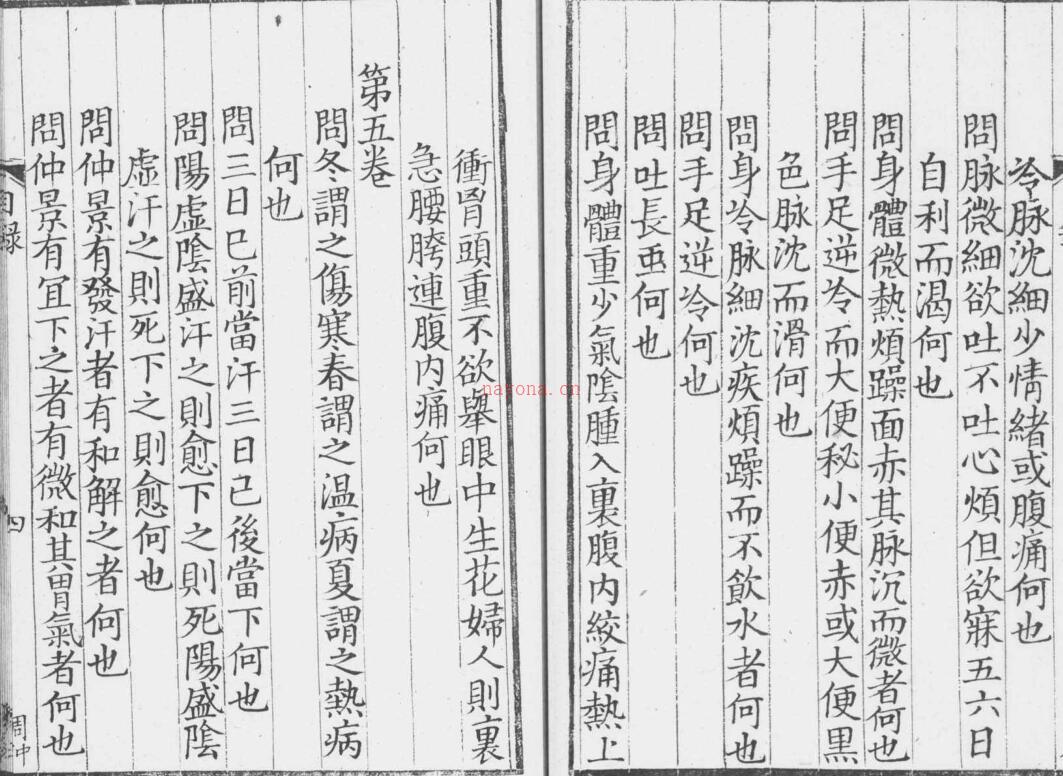 冷脉沈細少情緒或腹痛何也
問脉微細欲吐不吐心煩但欲寐五六日
自利而渴何也
問身體微熱煩躁面赤其脉沉而微者何也
問手足逆冷而大便秘小便赤或大便黑
色脉沈而滑何也
問身冷脉細沈疾煩躁而不飲水者何也
問手足逆冷何也
問吐長䖝何也
問身體重少氣陰腫入裏腹内絞痛熱上
衝胷頭重不欲舉眼中生花婦人則裏
急腰胯連腹内痛何也
第五卷
問冬謂之傷寒春謂之温病夏謂之熱病
何也
問三日已前當汗三日已後當下何也
問陽虛陰盛汗之則愈下之則死陽盛陰
虛汗之則死下之則愈何也
問仲景有發汗者有和解之者何也
問仲景有宜下之者有微和其胃氣者何也
目録
四
周中
nayona.cn